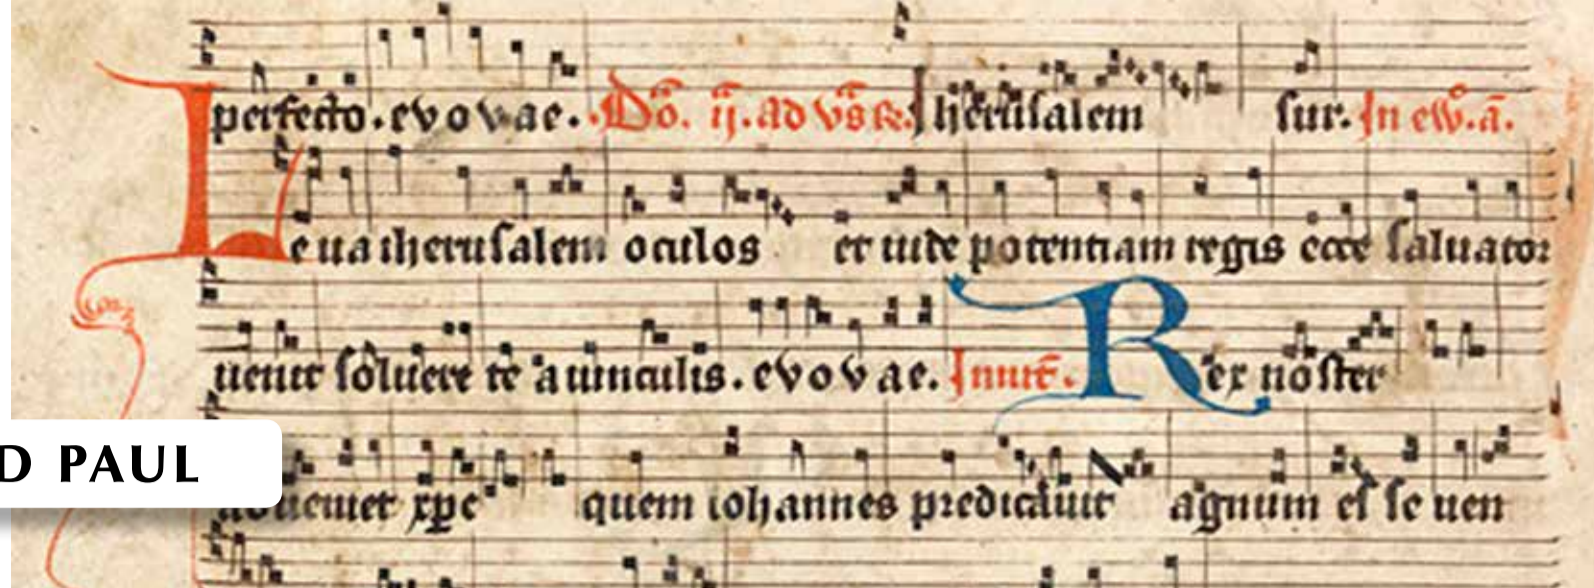 perfecto. evovae. Dō. ij. ad vs̄ Iherusalem sur. In ew̄.a.
Leua iherusalem oculos et uide potentiam regis ecce saluator
uenit soluere te a uinculis. evovae. Inuit. Rex noster
adueniet xpc quem iohannes predicauit agnum esse uen
D PAUL